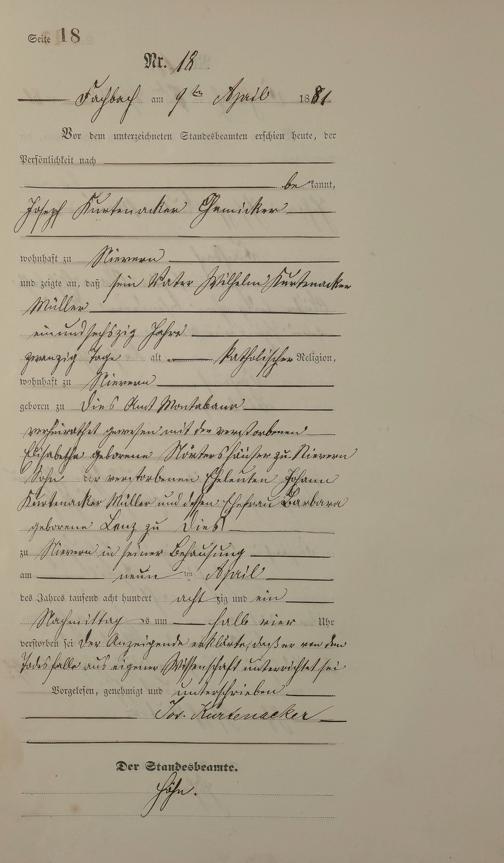 Seite 18
Nr. 18
Fachbach am 9ten April 1881
Vor dem unterzeichneten Standesbeamten erschien heute, der
Persönlichkeit nach
be kannt,
Joseph Kurtenacker Chemicker
wohnhaft zu Nievern
und zeigte an, daß sein Vater Wilhelm Kurtenacker
Müller
einundsechszig Jahre
zwanzig Tage alt katholischer Religion,
wohnhaft zu Nievern
geboren zu Dies Amt Montabaur
verheirathet gewesen mit der verstorbenen
Elisabetha geborene zu Nievern
Sohn der verstorbenen Eheleuten Johann
Kurtenacker Müller und dessen Ehefrau Barbara
geborene Lenz zu Dies
zu Nievern in seiner Behausung
am neun ten April
des Jahres tausend acht hundert acht zig und ein
Nachmittag s um halb vier Uhr
verstorben sei der Anzeigende erklärte, daß er von dem
Todesfalle aus eigener Wissenschaft unterrichtet sei
Vorgelesen, genehmigt und unterschrieben
Jos. Kurtenacker
Der Standesbeamte.
Höhn.